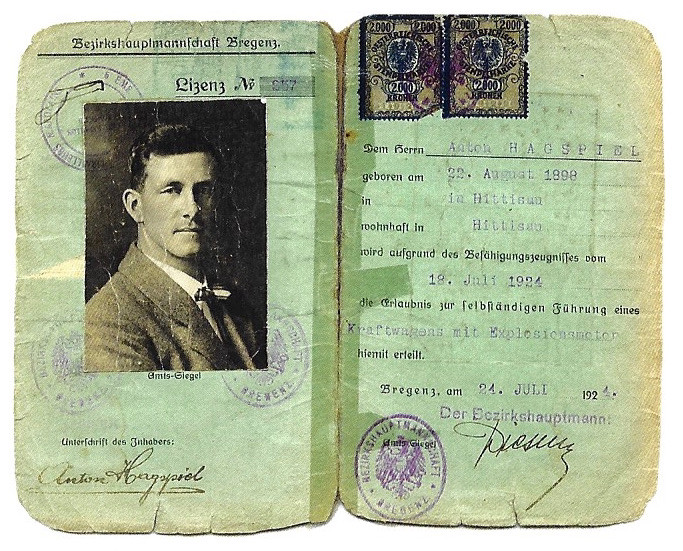 Bezirkshauptmannschaft Bregenz.
Lizenz № 257
Amts-Siegel
BREGENZ
Unterschrift des Inhabers:
Anton Hagspiel
2000 2000
2000 2000
KRONEN KRONEN
Dem Herrn Anton HAGSPIEL
geboren am 22. August 1898
in in Hittisau
wohnhaft in Hittisau
wird aufgrund des Befähigungszeugnisses vom
18. Juli 1924
die Erlaubnis zur selbständigen Führung eines
Kraftwagens mit Explosionsmotor
hiemit erteilt.
Bregenz, am 24. JULI 1924.
Der Bezirkshauptmann:
Amts-Siegel
BEZIRKSHAUPTMANNSCHAFT
BREGENZ